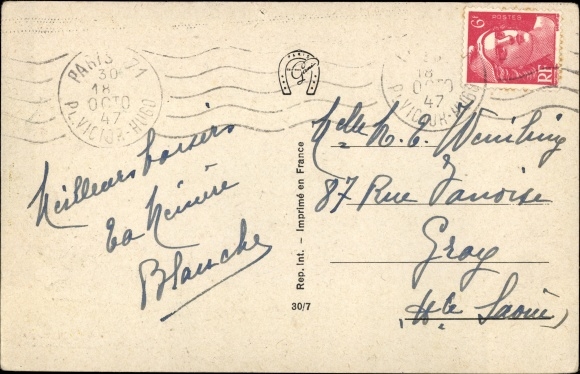 PARIS 71
30
18
OCTO
47
PL. VICTOR-HUGO
PARIS
30
18
OCTO
47
PL. VICTOR-HUGO
6F
POSTES
RF
Meilleurs baisers
Ta Mémère
Blanche
Rep. Int. - Imprimé en France
30/7
Melle
87 Rue
Gray
(Hte Saône)